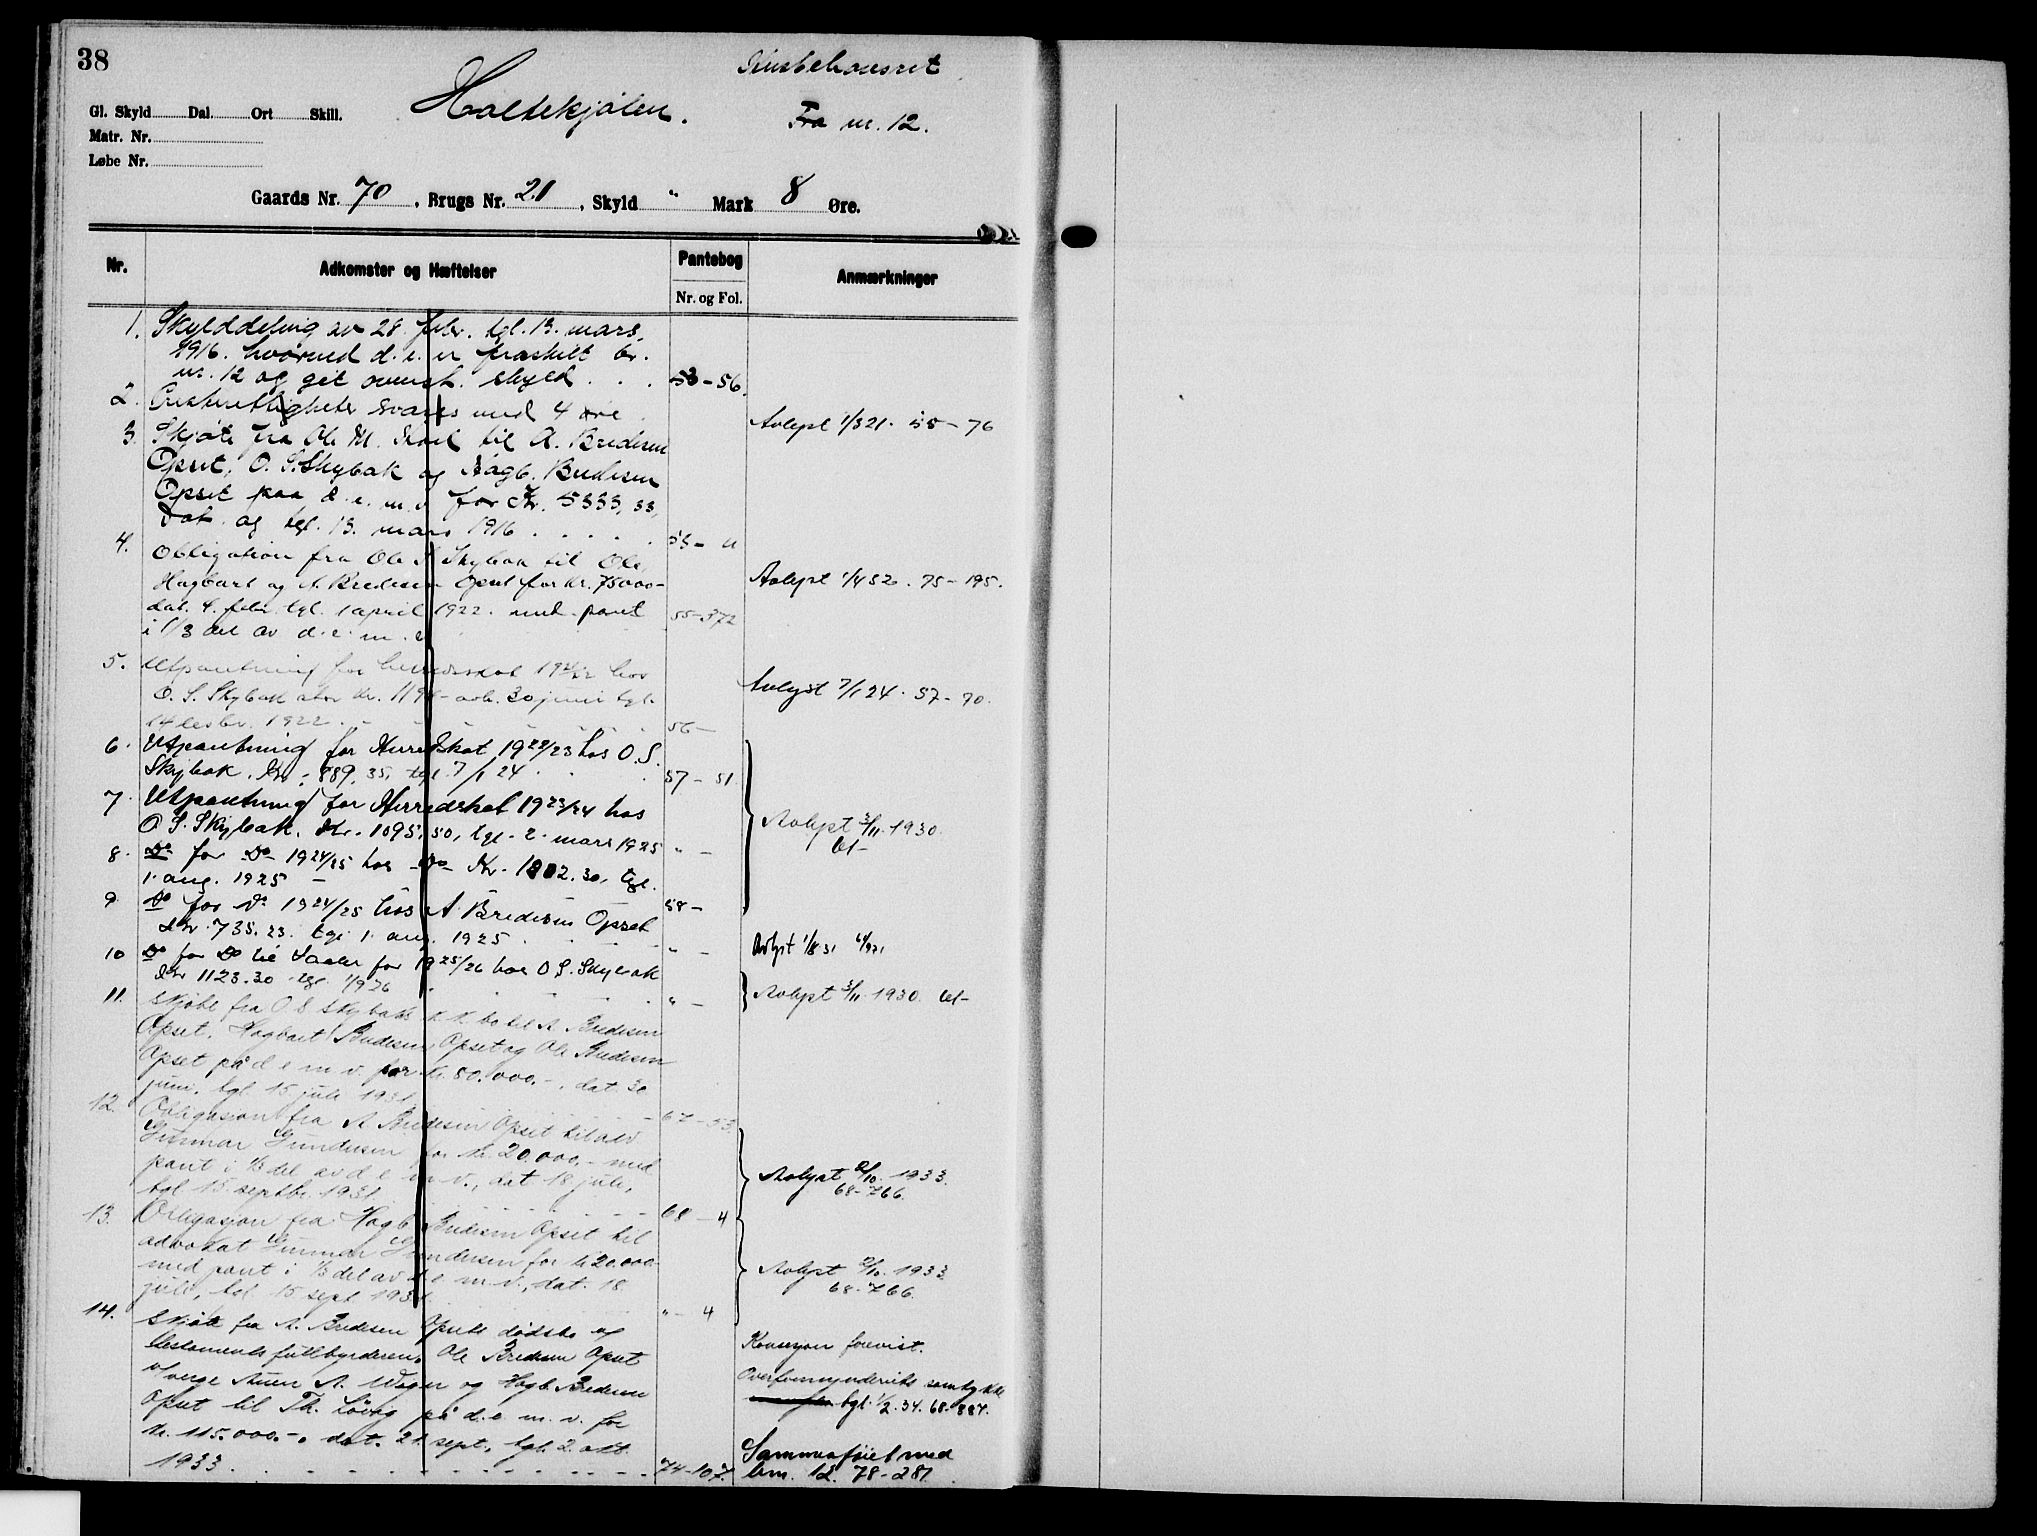 38
Gl. Skyld Dal. Ort Skill.
Matr. Nr.
Løbe Nr.
Fra nr. 12.
Gaards Nr. 70, Brugs Nr. 21, Skyld " Mark 8 Øre.
Nr.
Adkomster og Hæftelser
Pantebog
Nr. og Fol.
Anmærkninger
1. Skylddeling av 28. febr. tgl. 13. mars
1916. hvorved d. e. er fraskilt br.
nr. 12 og git ovenst. skyld . . . 53-56.
2. svares med 4 øre.
Avlyst 1/3 21. 55-76
3. Skjøte fra Ole M. til A. Bredesen
Opset, O. S. Skybak og Hagb. Bredesen
Opset paa d. e. m. v. for Kr. 5333,33,
dat. og tgl. 13. mars 1916 . . . . . 53- "
4. Obligation fra Ole S Skybak til Ole,
Hagbart og A Bredesen Opset for kr. 75000-
dat. 4. febr. tgl. 1 april 1922. med pant
i 1/3 del av d. e. m. v. 55-372
Avlyst 1/4 52. 75-195.
5. Utpantning for herredsskat 1921/22 hos
O. S. Skybak stor kr. 1194- avh. 30 juni tgl.
14 1922. 56-
Avlyst 7/1 24. 57-70.
6. Utpantning for Herredskat 1922/23 hos O. S.
Skybak. Kr. 889,35, tgl. 7/1 24. 57-51.
7. Utpantning for Herredskat 1923/24 hos
O S. Skybak. Kr. 1095,50, tgl. 2. mars 1925 " -
Avlyst 3/11. 1930.
8. Do for Do 1924/25 hos Do Kr. 1802.30, tgl.
1. aug. 1925 58-
9. Do for Do 1924/25 hos A. Bredesen Opset
Kr. 735.23. tgl. 1. aug. 1925 . " -
Avlyst 1/8 31
10 Do for Do til for 1925/26 hos O S. Skybak
Kr 1123.30 tgl. 1/9 26 . " -
Avlyst 3/11. 1930.
11. Skjøte fra O S Skybaks K K bo til A Bredesen
Opset, Hagbart Bredesen Opset og Ole Bredesen
Opset på d e m v. for kr. 80.000.-, dat. 30
juni, tgl. 15 juli 1931. 67-53
12. Obligasjon fra A Bredesen Opset til adv
Gunnar Gundersen for kr. 20.000.- med
pant i 1/3 del av d e m v., dat 18 juli,
tgl 15. septbr. 1931. 68-4
Avlyst 2/10. 1933.
68-766.
13. Obligasjon fra Hagb. Bredesen Opset til
advokat Gunnar Gundersen for kr 20.000-
med pant i 1/3 del av d e m v., dat. 18
juli, tgl. 15 sept 1931. "- 4
Avlyst 2/10. 1933.
68-766.
14. Skjøte fra A. Bredesen Opsets dødsbo ved
testamentsfullbyrderen, Ole Bredesen Opset
og Hagb. Bredesen
Opset til Th. Løvog på d. e. m. v. for
kr. 115.000.-, dat. 21. sept., tgl. 2. okt.
1933 . . . . . . . . . 74-107.
Konsesjon forevist.
Overformynderiets samtykke
tgl. 1/2. 34. 68-884.
Sammenføiet med
brn. 12. 78-281.